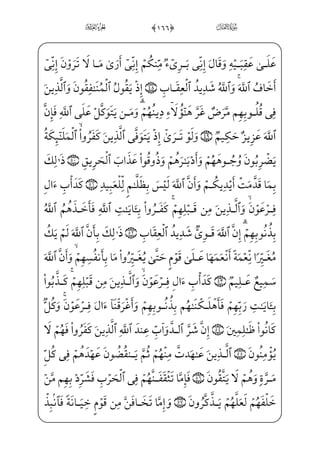 الجزء العاشر ﴿١٦٦﴾ سورة الأنفال
عَلَىٰ عَقِبَيْهِ وَقَالَ إِنِّى بَرِىٓءٌ مِّنكُمْ إِنِّىٓ أَرَىٰ مَا لَا تَرَوْنَ إِنِّىٓ
أَخَافُ ٱللَّهَ ۚ وَٱللَّهُ شَدِيدُ ٱلْعِقَابِ ۝٤٨ إِذْ يَقُولُ ٱلْمُنَٰفِقُونَ وَٱلَّذِينَ
فِى قُلُوبِهِم مَّرَضٌ غَرَّ هَٰٓؤُلَآءِ دِينُهُمْ ۗ وَمَن يَتَوَكَّلْ عَلَى ٱللَّهِ فَإِنَّ
ٱللَّهَ عَزِيزٌ حَكِيمٌ ۝٤٩ وَلَوْ تَرَىٰٓ إِذْ يَتَوَفَّى ٱلَّذِينَ كَفَرُوا۟ ۙ ٱلْمَلَٰٓئِكَةُ
يَضْرِبُونَ وُجُوهَهُمْ وَأَدْبَٰرَهُمْ وَذُوقُوا۟ عَذَابَ ٱلْحَرِيقِ ۝٥٠ ذَٰلِكَ
بِمَا قَدَّمَتْ أَيْدِيكُمْ وَأَنَّ ٱللَّهَ لَيْسَ بِظَلَّٰمٍ لِّلْعَبِيدِ ۝٥١ كَدَأْبِ ءَالِ
فِرْعَوْنَ ۙ وَٱلَّذِينَ مِن قَبْلِهِمْ ۚ كَفَرُوا۟ بِـَٔايَٰتِ ٱللَّهِ فَأَخَذَهُمُ ٱللَّهُ
بِذُنُوبِهِمْ ۗ إِنَّ ٱللَّهَ قَوِىٌّ شَدِيدُ ٱلْعِقَابِ ۝٥٢ ذَٰلِكَ بِأَنَّ ٱللَّهَ لَمْ يَكُ
مُغَيِّرًا نِّعْمَةً أَنْعَمَهَا عَلَىٰ قَوْمٍ حَتَّىٰ يُغَيِّرُوا۟ مَا بِأَنفُسِهِمْ ۙ وَأَنَّ ٱللَّهَ
سَمِيعٌ عَلِيمٌ ۝٥٣ كَدَأْبِ ءَالِ فِرْعَوْنَ ۙ وَٱلَّذِينَ مِن قَبْلِهِمْ ۚ كَذَّبُوا۟
بِـَٔايَٰتِ رَبِّهِمْ فَأَهْلَكْنَٰهُم بِذُنُوبِهِمْ وَأَغْرَقْنَآ ءَالَ فِرْعَوْنَ ۚ وَكُلٌّ
كَانُوا۟ ظَٰلِمِينَ ۝٥٤ إِنَّ شَرَّ ٱلدَّوَآبِّ عِندَ ٱللَّهِ ٱلَّذِينَ كَفَرُوا۟ فَهُمْ لَا
يُؤْمِنُونَ ۝٥٥ ٱلَّذِينَ عَٰهَدتَّ مِنْهُمْ ثُمَّ يَنقُضُونَ عَهْدَهُمْ فِى كُلِّ
مَرَّةٍ وَهُمْ لَا يَتَّقُونَ ۝٥٦ فَإِمَّا تَثْقَفَنَّهُمْ فِى ٱلْحَرْبِ فَشَرِّدْ بِهِم مَّنْ
خَلْفَهُمْ لَعَلَّهُمْ يَذَّكَّرُونَ ۝٥٧ وَإِمَّا تَخَافَنَّ مِن قَوْمٍ خِيَانَةً فَٱنۢبِذْ